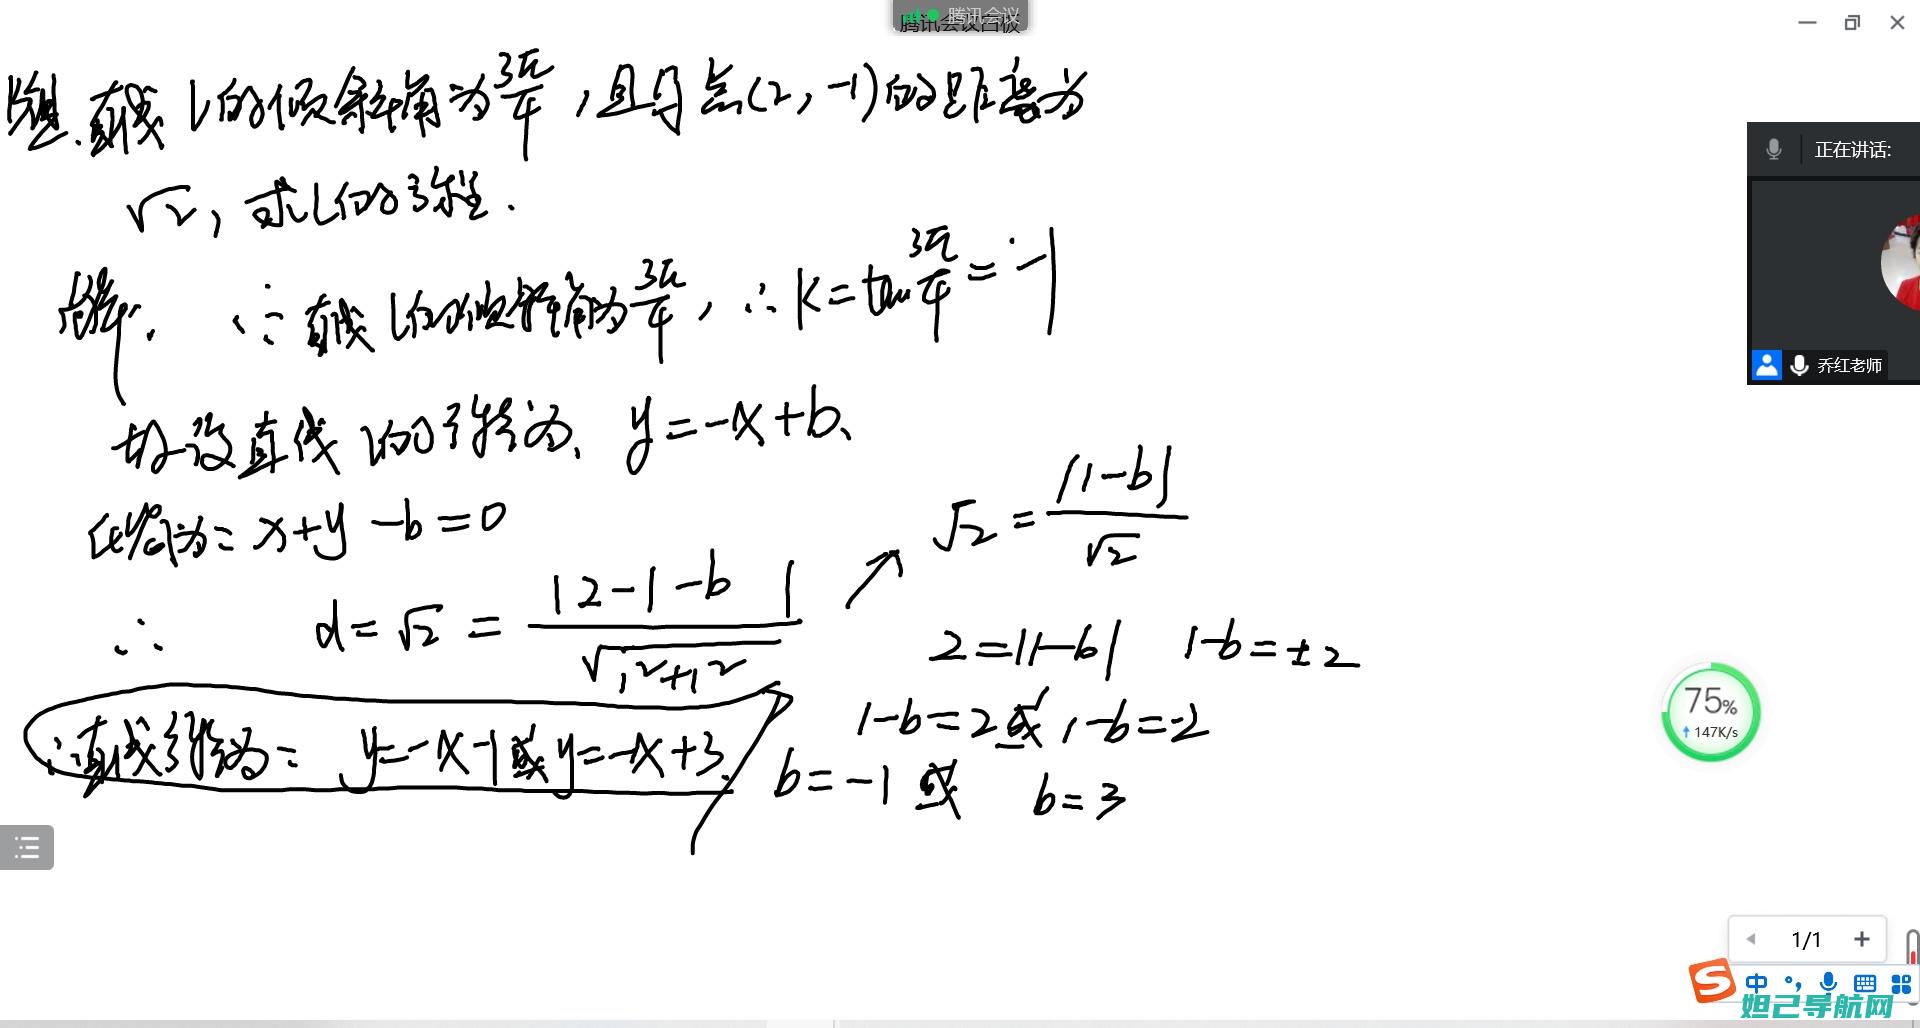 腾讯会议
腾讯会议白板
题.直线l的倾斜角为3π/4,且与点(2,-1)的距离为
√2,求l的方程.
正在讲话:
解. ∵直线l的倾斜角为3π/4,∴k=tan3π/4=-1
乔红老师
故设直线l的方程为、y=-x+b、
化简为:x+y-b=0
√2=|1-b|/√2
∴ d=√2=|2-1-b|/√1²+1²
2=|1-b| 1-b=±2
1-b=2或1-b=-2
b=-1或 b=3
∴直线方程为:y=-x-1或y=-x+3.
75%
147K/s
1/1
中
妲己导航网